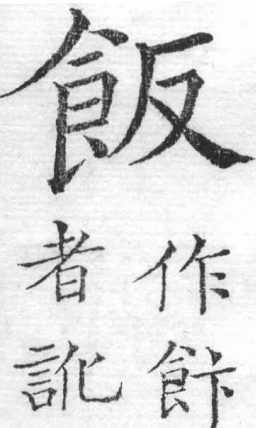 飯
作飰
者訛